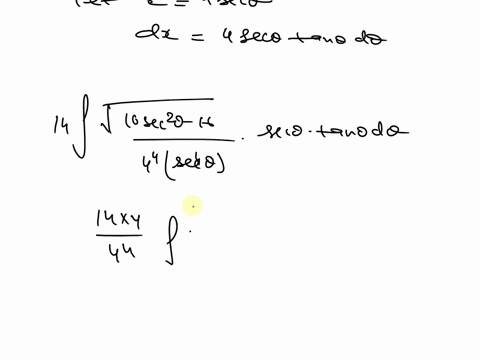 x = 4 secθ
dx = 4 secθ tanθ dθ
14 ∫ √(16 sec²θ - 16) / 4⁴ (sec⁴θ) · secθ · tanθ dθ
14×4 / 4⁴ ∫